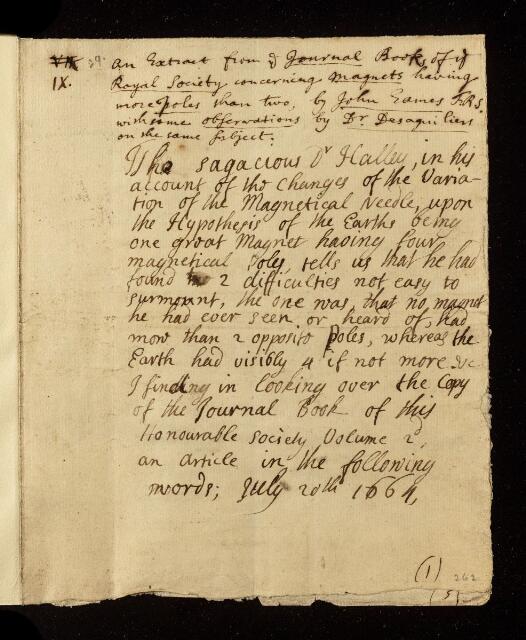 VIII 39. An Extract from ye Journal Books of ye
IX. Royal Society concerning Magnets having
more Poles than two, by John Eames FRS.
with some observations by Dr Desaguliers
on the same Subject.
The sagacious Dr Halley, in his
account of the changes of the Varia-
tion of the Magnetical Needle, upon
the Hypothesis of the Earths being
one great Magnet having four
magnetical Poles, tells us that he had
found 2 difficulties not easy to
surmount, the one was, that no magnet
he had ever seen or heard of, had
more than 2 opposite Poles, whereas the
Earth had visibly 4 if not more &c
I finding in looking over the Copy
of the Journal Book of this
Honourable Society Volume 2d,
an article in the following
words; July 20th 1664,
(1) 262
(5)